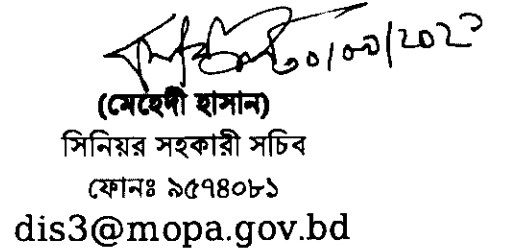 (মেহেদী হাসান)
সিনিয়র সহকারী সচিব
ফোনঃ ৯৫৭৪০৮১
dis3@mopa.gov.bd